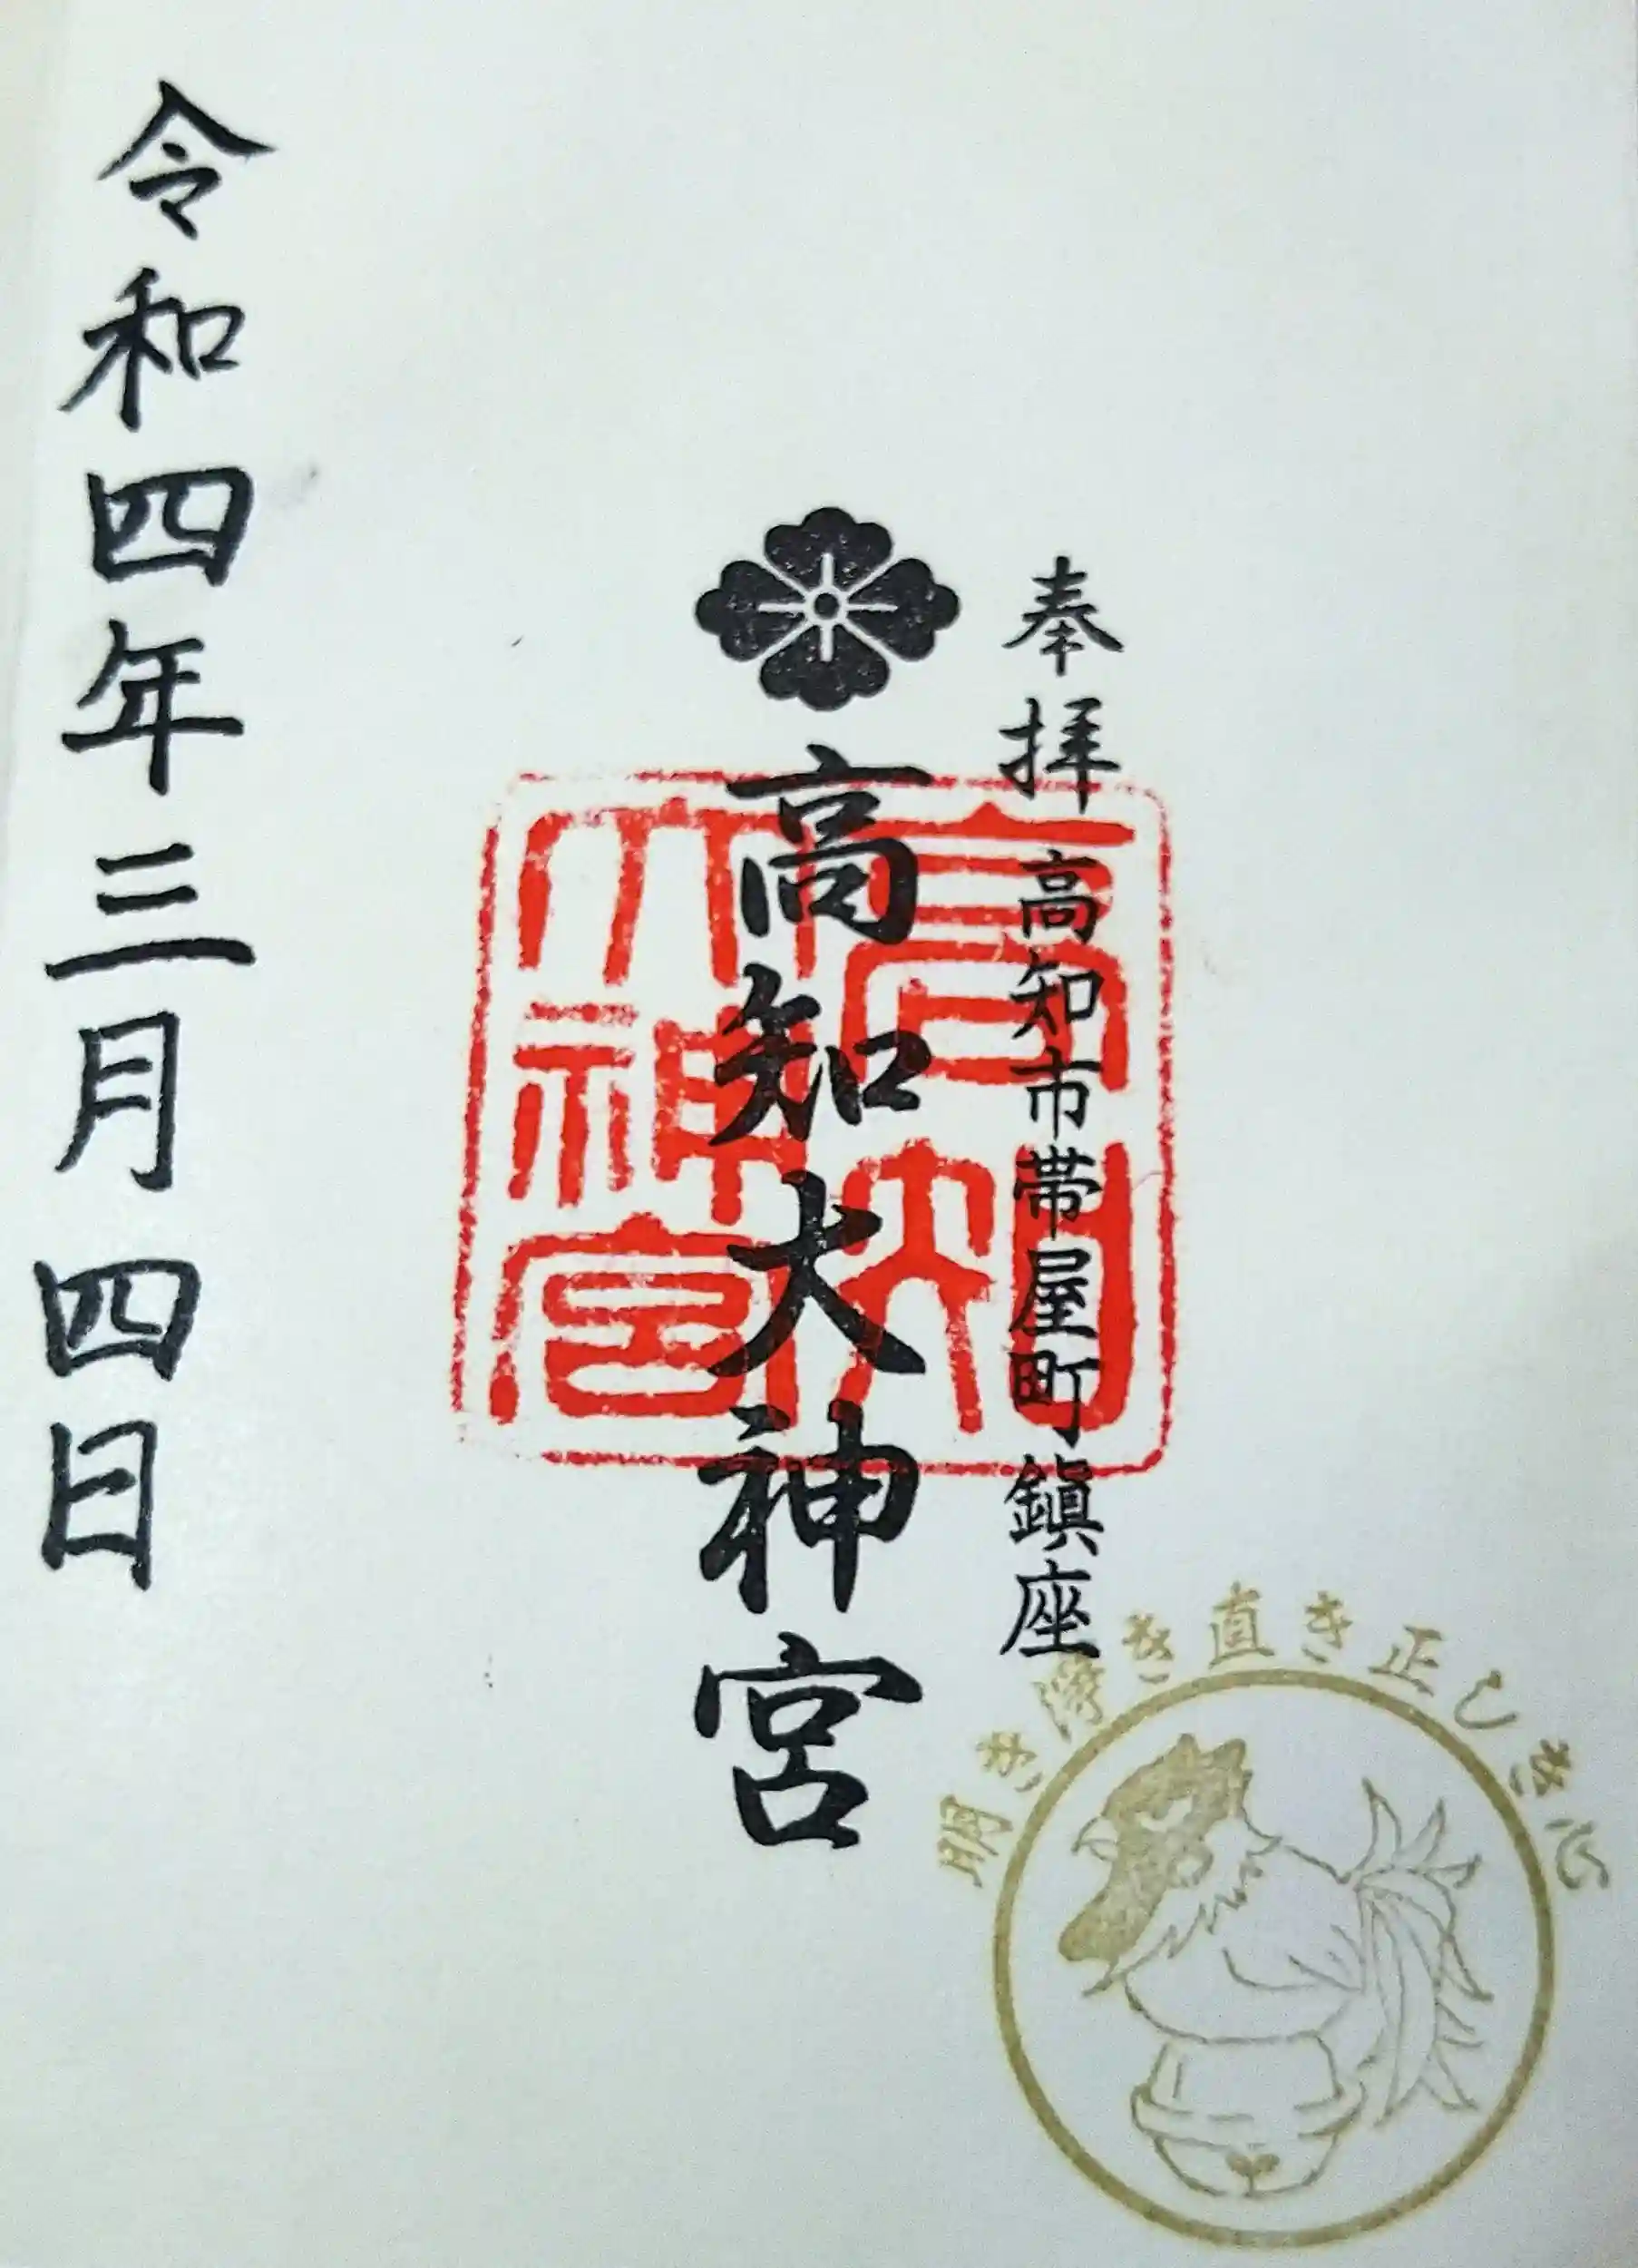 奉拝 高知市帯屋町鎮座
高知大神宮
高知
大神宮
令和四年三月四日
明き浄き直き正しき心